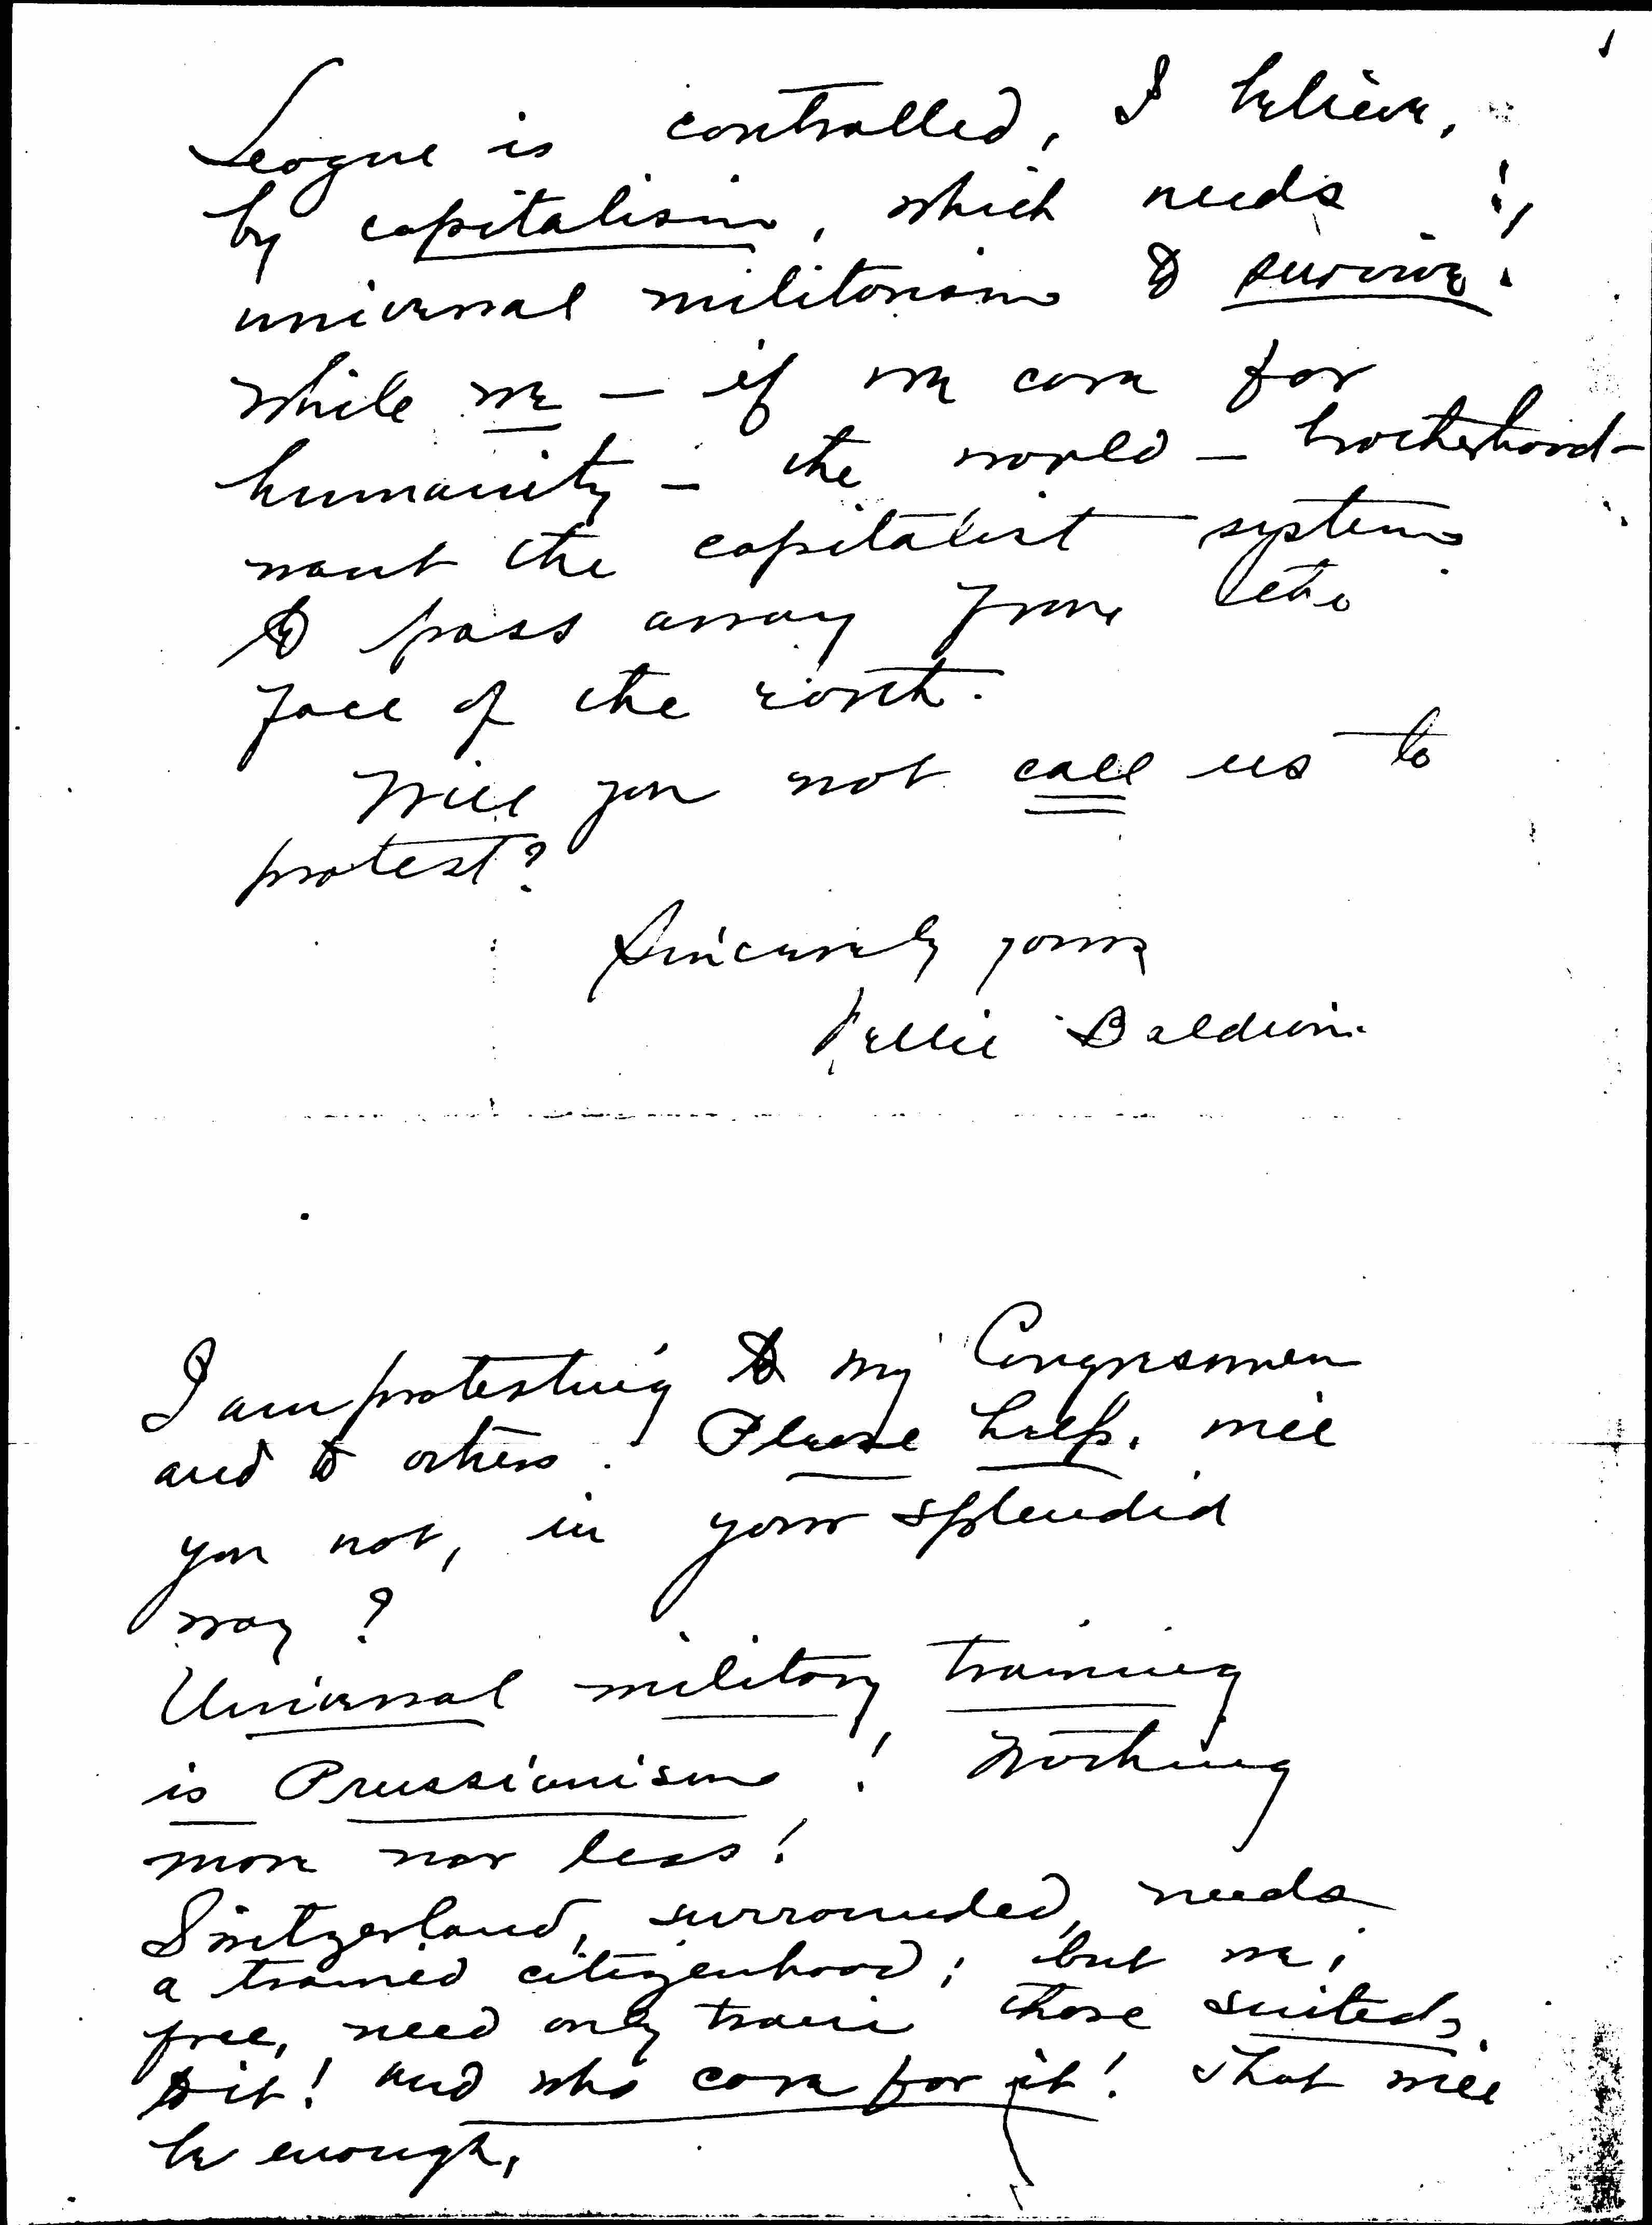 League is controlled, I believe,
by capitalism, which needs
universal militarism to survive.
while we – if we care for
humanity – the world – brotherhood –
want the capitalist system
to pass away from the
face of the earth.
Will you not call us to
protest?
Sincerely yours
Nellie Baldwin.
I am protesting to my Congressmen
and to others. Please help. Will
you not, in your splendid
way?
Universal military training
is Prussianism! Nothing
more nor less!
Switzerland, surrounded, needs
a trained citizenhood; but we,
free, need only train those suited
to it! and who care for it! That will
be enough.